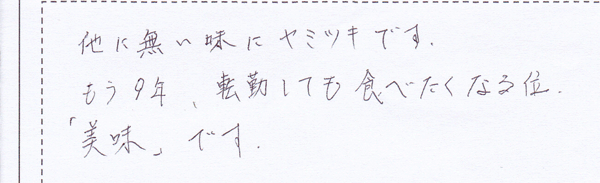 他に無い味にヤミツキです.
もう9年、転勤しても食べたくなる位.
「美味」です.